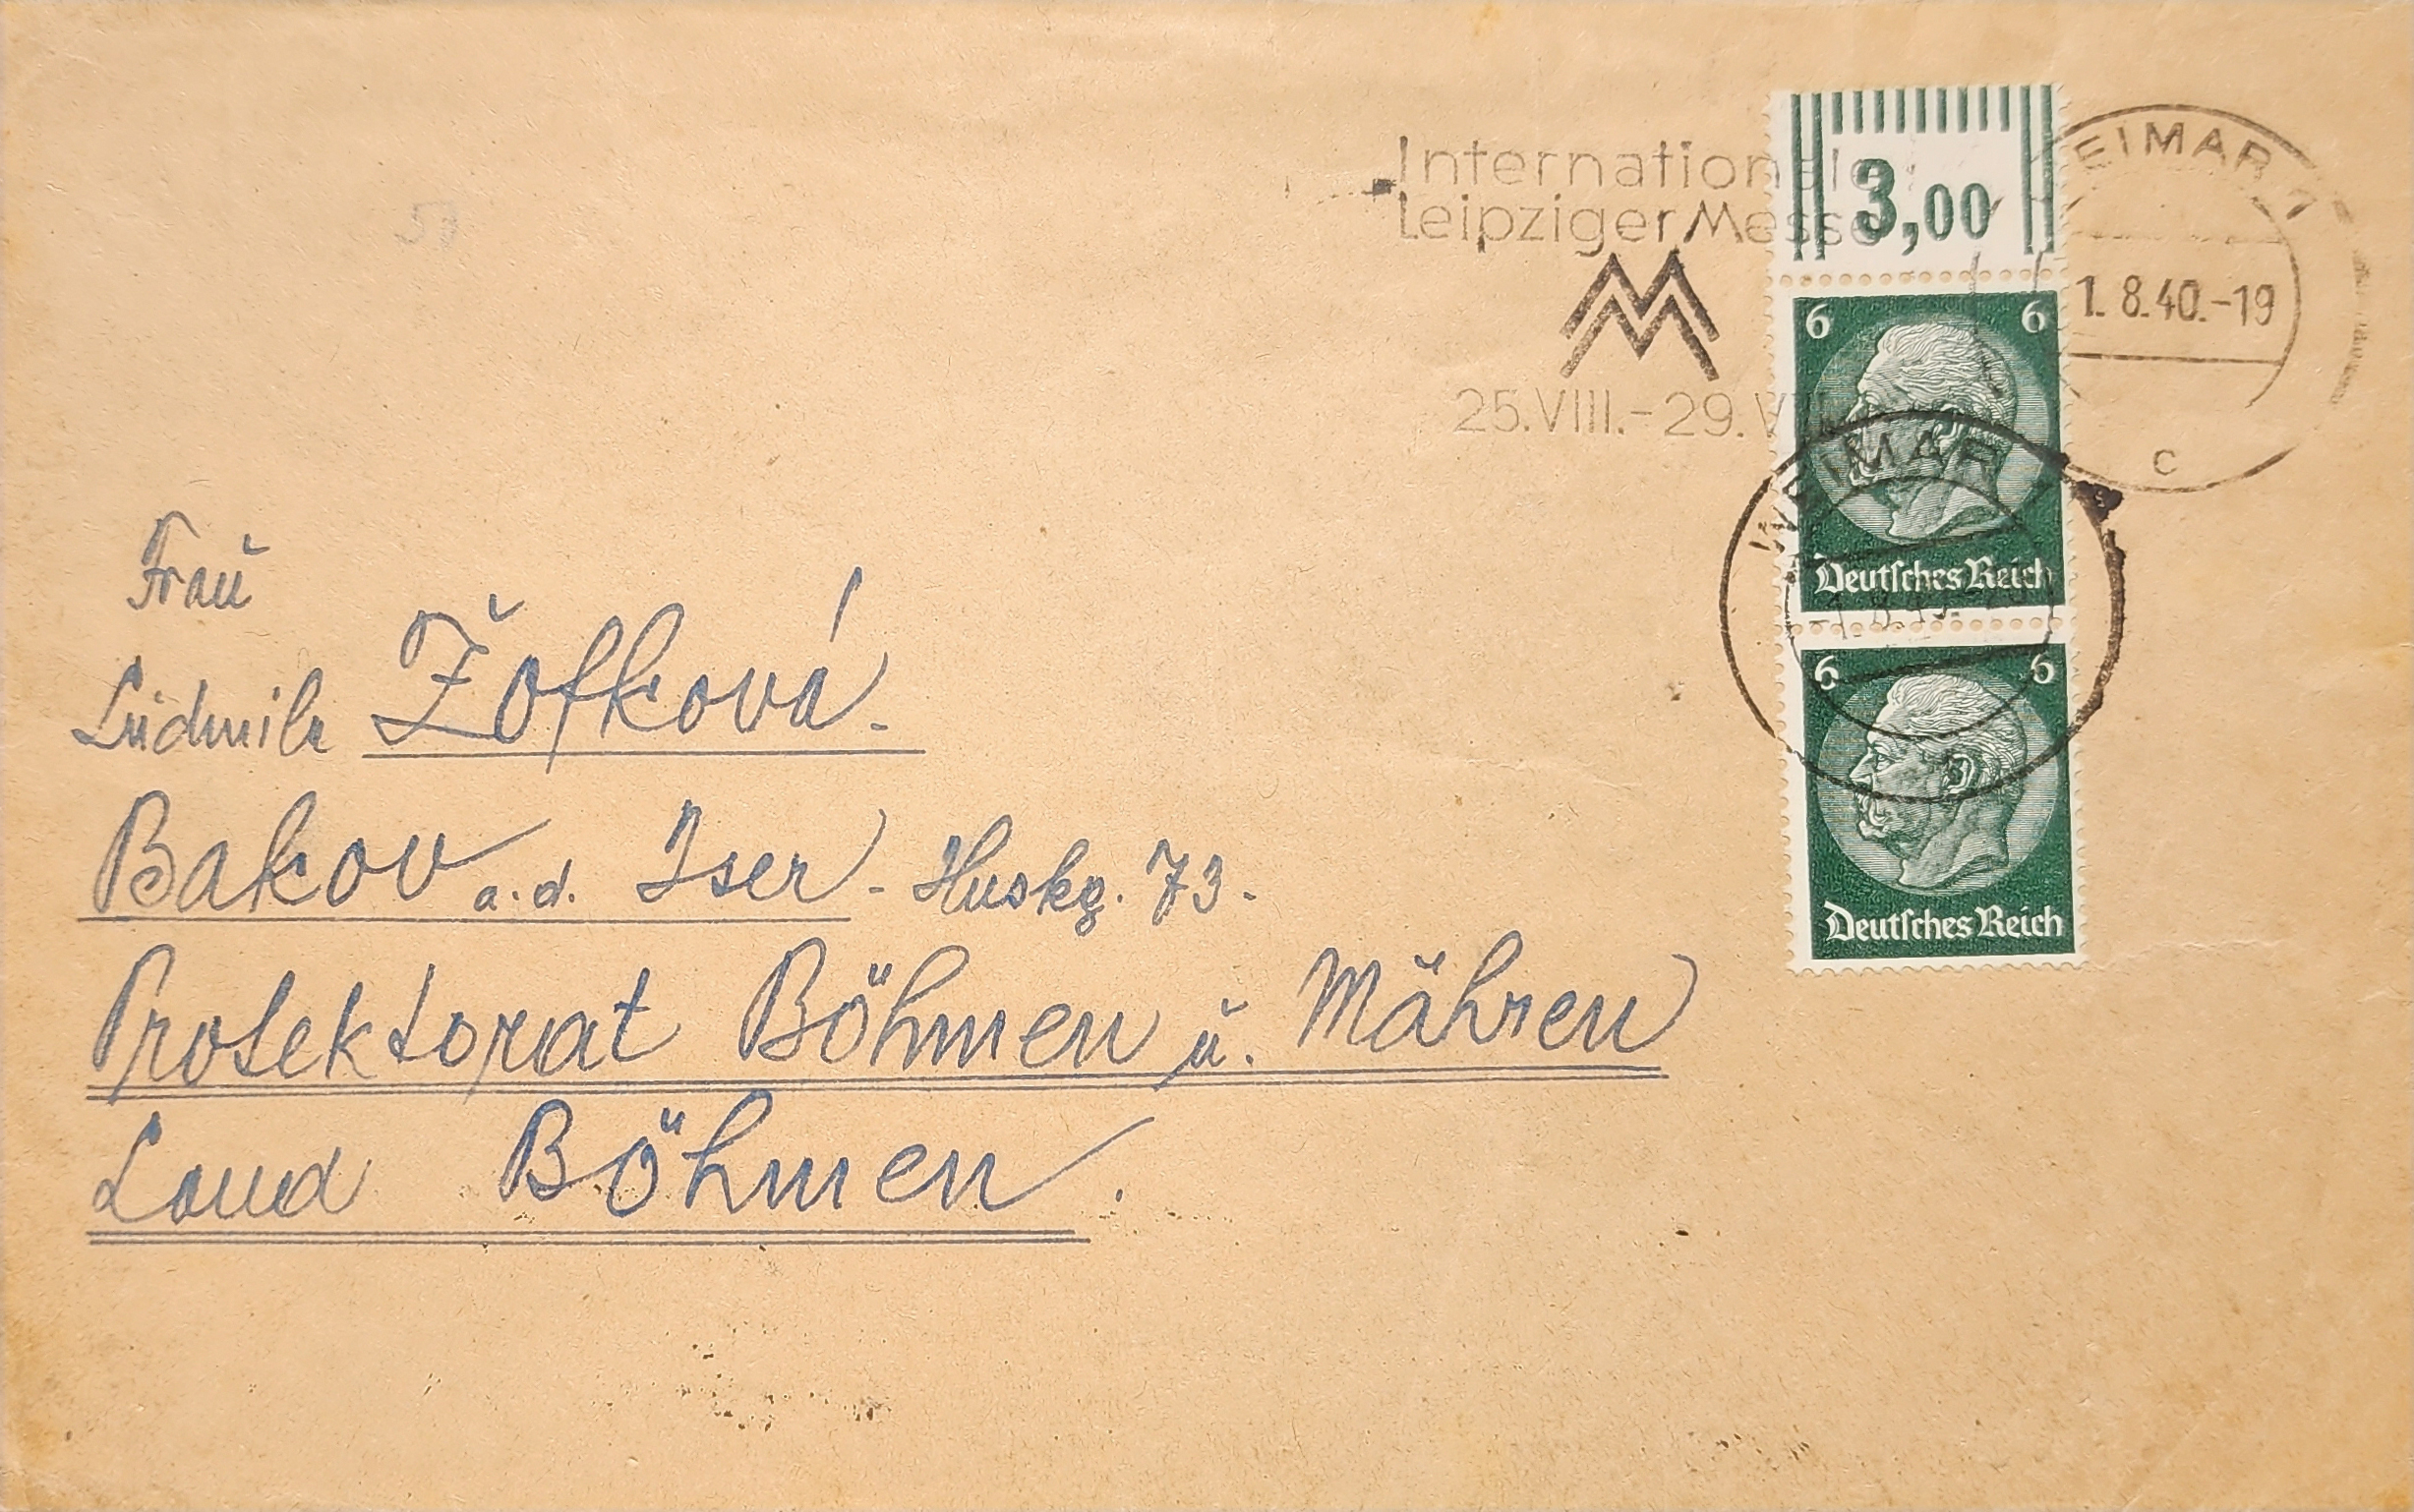 Internationale
Leipziger Messe
25.VIII.-29.VIII
3,00
EIMAR 1
1. 8.40.-19
c
6 6
WEIMAR
Deutsches Reich
6 6
Deutsches Reich
Frau
Ludmila Žofková.
Bakov a.d. Iser - Huskg. 73.
Protektorat Böhmen u. Mähren
Land Böhmen.